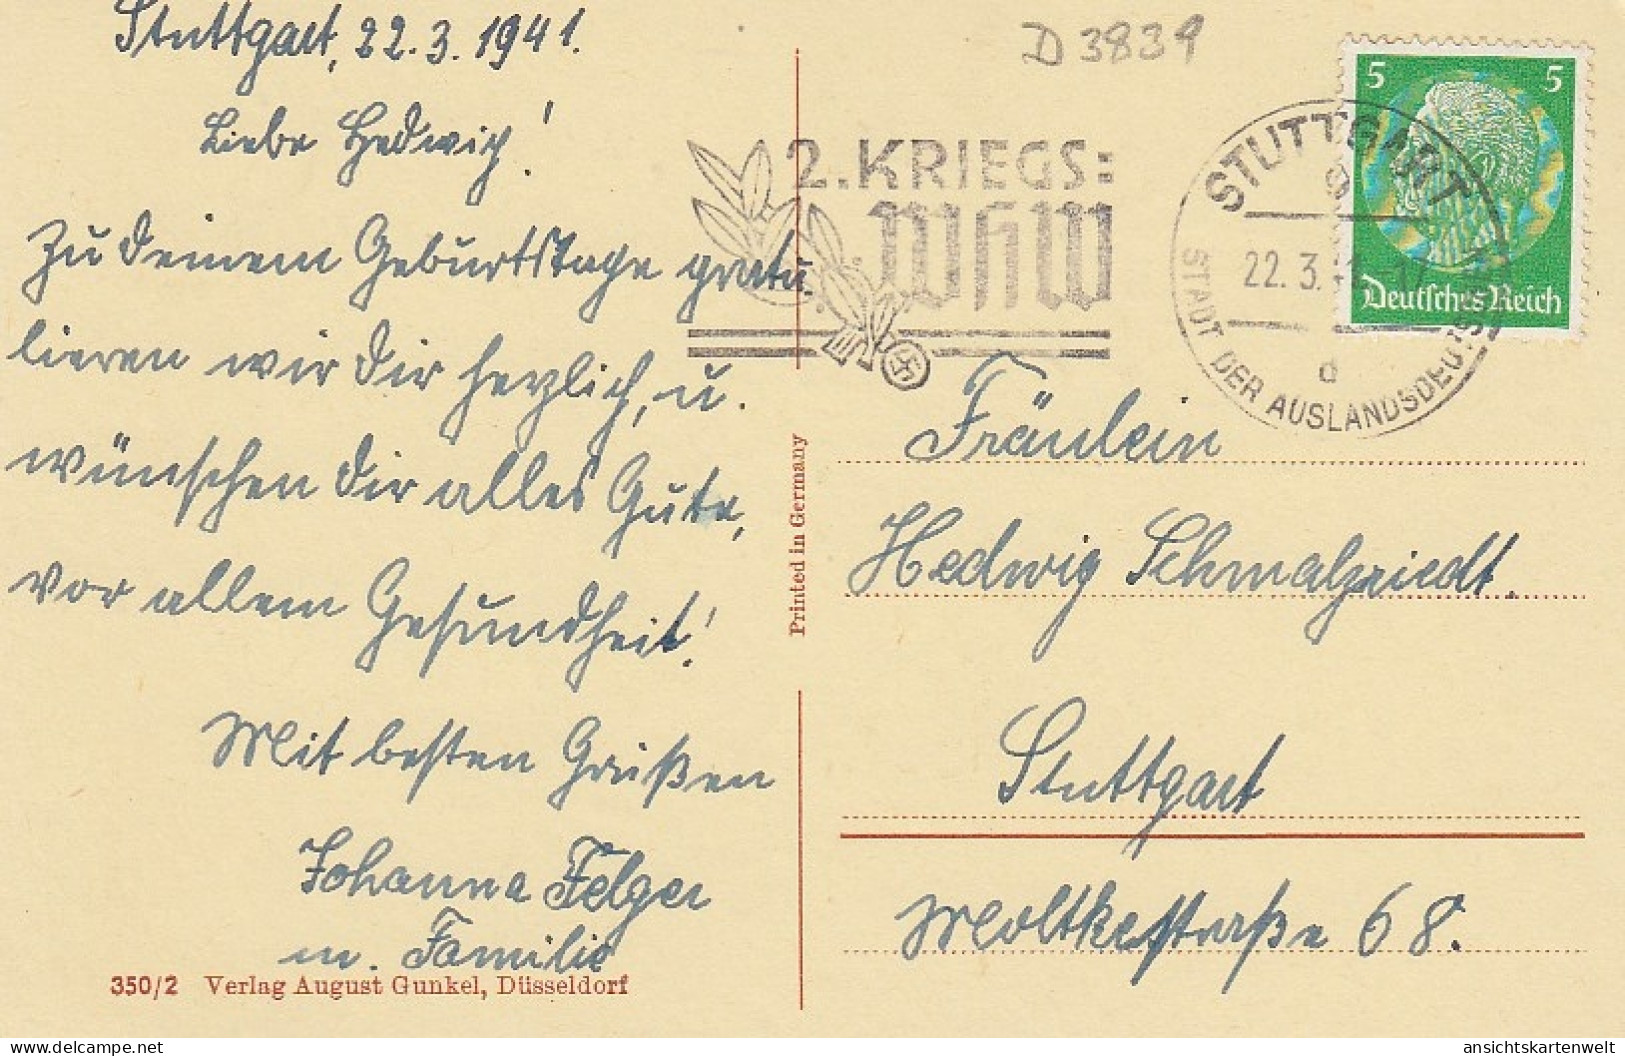 Stuttgart, 22.3.1941.
Liebe Hedwig!
Zu Deinem Geburtstage gratu-
lieren wir Dir herzlich, u.
wünschen Dir alles Gute,
vor allem Gesundheit!
Mit besten Grüßen
Johanna Felger
m. Familie
350/2 Verlag August Gunkel, Düsseldorf
Printed in Germany
D 3839
2. KRIEGS:
WHW
STUTTGART
9
22.3.
d
STADT DER AUSLANDSDEUTSCHEN
5 5
Deutsches Reich
Fräulein
Hedwig Schmalzriedt.
Stuttgart
Moltkestraße 68.
delcampe.net
ansichtskartenwelt